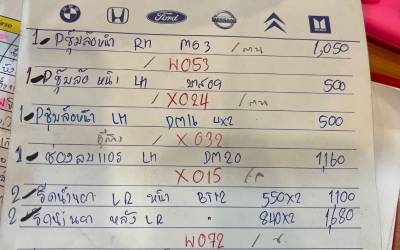 Ford
1 Pซุ้มล้อหน้า RH M03 / ตน 1,050
/ W053
1 Pซุ้มล้อ หน้า LH 500
/ X024 / ตน
1 Pซุ้มล้อหน้า LH DM16 4x2 500
/ X032
1 ช่องลมแอร์ LH DM20 1,160
X015 /
2 รีดน้ำนอก LR หน้า BT42 550x2 1100
2 รีดน้ำนอก หลัง LR " 840x2 1,680
W072 / ช.